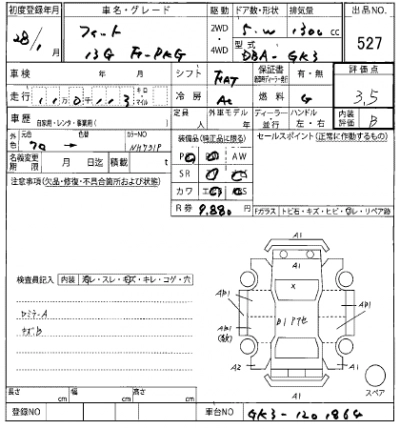 初度登録年月 車名・グレード 駆動 ドア数・形状 排気量 出品NO
28/1月 フィット 13G F-PKG 2WD・4WD 5.W 1300cc 527
型式 DBA-GK3
車検 年 月 シフト FAT 保証書 有・無 評価点 3.5
走行 110003 キロ マイル 冷房 AC 燃料 G
定員 人 外車モデル 年 ディーラー・並行 ハンドル 左・右 内装評価 B
車歴 自家用・レンタ・事業用( )
外色 元色 色替 カラーNO NH731P
装備品(純正品に限る) セールスポイント(正常に作動するもの)
名義変更期限 月 日迄 積載 t
PS PW AW
SR
カワ
R券 9,880円
注意事項(欠品・修復・不具合箇所および状態)
Fガラス トビ石・キズ・ヒビ・ワレ・リペア跡
検査員記入 内装 汚レ・スレ・キズ・キレ・コゲ・穴
A1
A1
A1
A1
A2
A1
A1
長さ cm 幅 cm 高さ cm
スペア
登録NO 車台NO GK3-1201864